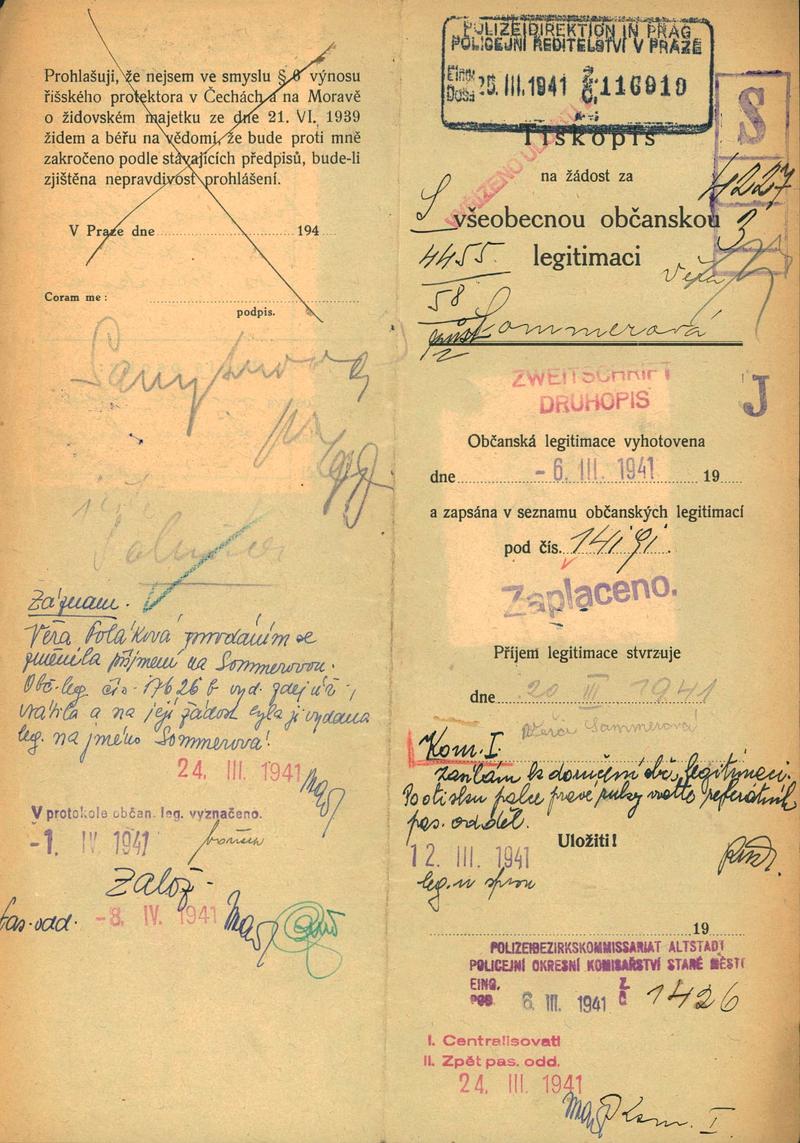 Prohlašuji, že nejsem ve smyslu § 6 výnosu
říšského protektora v Čechách a na Moravě
o židovském majetku ze dne 21. VI. 1939
židem a béřu na vědomí, že bude proti mně
zakročeno podle stávajících předpisů, bude-li
zjištěna nepravdivost prohlášení.
V Praze dne 194
Coram me :
podpis.
Záznam.
Věra Poláková provdáním se
změnila příjmení na Sommerovou.
Obč. leg. čís. 17626 b vyd. zdejší
vrátila a na její žádost byla jí vydána
leg. na jméno Sommerová!
24. III. 1941
V protokole občan. leg. vyznačeno.
-1. IV 1941
Založ-
Pas. odd. -8. IV. 1941
POLIZEIDIREKTION IN PRAG
POLICEJNÍ ŘEDITELSTVÍ V PRAZE
Eing. Došlo 25. III. 1941 Z. Č. 116910
Tiskopis
S
na žádost za
4227
S všeobecnou občanskou 3
4455. legitimaci
Věra
58
Sommerová
ZWEITSCHRIFT
DRUHOPIS
J
Občanská legitimace vyhotovena
dne - 6. III. 1941 19
a zapsána v seznamu občanských legitimací
pod čís. 141/91.
Zaplaceno.
Příjem legitimace stvrzuje
dne 20 III 1941
Věra Sommerová
Kom. I.
zasílám k doručení obč. legitimaci.
Po otisku palce pravé ruky vraťte referátník
pas. odděl.
Uložiti!
12. III. 1941
19
POLIZEIBEZIRKSKOMMISSARIAT ALTSTADT
POLICEJNÍ OKRESNÍ KOMISAŘSTVÍ STARÉ MĚSTO
EING.
POD. 6. III. 1941 Z. Č. 1426
I. Centralisovati
II. Zpět pas. odd.
24. III. 1941
Kom. I